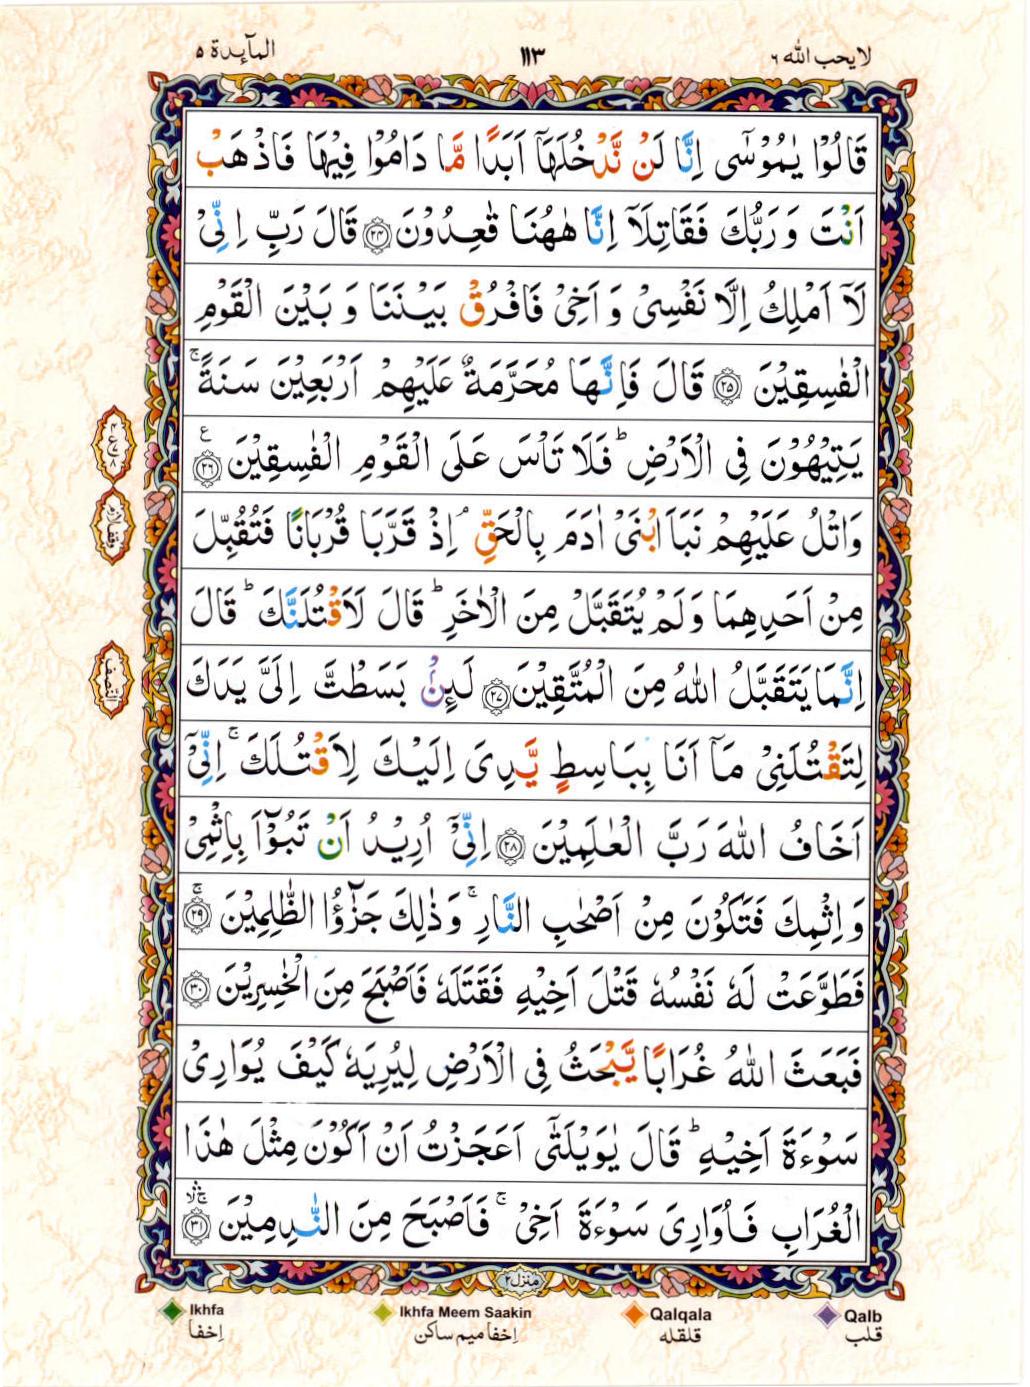 لايحب الله ٦
١١٣
المآىِٕدة ٥
قَالُوْا يٰمُوْسٰۤى اِنَّا لَنْ نَّدْخُلَهَاۤ اَبَدًا مَّا دَامُوْا فِيْهَا فَاذْهَبْ
اَنْتَ وَ رَبُّكَ فَقَاتِلَاۤ اِنَّا هٰهُنَا قٰعِدُوْنَ ۝٢٤ قَالَ رَبِّ اِنِّيْ
لَاۤ اَمْلِكُ اِلَّا نَفْسِيْ وَ اَخِيْ فَافْرُقْ بَيْنَنَا وَ بَيْنَ الْقَوْمِ
الْفٰسِقِيْنَ ۝٢٥ قَالَ فَاِنَّهَا مُحَرَّمَةٌ عَلَيْهِمْ اَرْبَعِيْنَ سَنَةً ۚ
يَتِيْهُوْنَ فِى الْاَرْضِ ؕ فَلَا تَاْسَ عَلَى الْقَوْمِ الْفٰسِقِيْنَ ۝٢٦ ع
وَاتْلُ عَلَيْهِمْ نَبَاَ ابْنَيْ اٰدَمَ بِالْحَقِّ ۘ اِذْ قَرَّبَا قُرْبَانًا فَتُقُبِّلَ
وقف لازم
مِنْ اَحَدِهِمَا وَ لَمْ يُتَقَبَّلْ مِنَ الْاٰخَرِ ؕ قَالَ لَاَقْتُلَنَّكَ ؕ قَالَ
اِنَّمَا يَتَقَبَّلُ اللّٰهُ مِنَ الْمُتَّقِيْنَ ۝٢٧ لَىِٕنْۢ بَسَطْتَّ اِلَيَّ يَدَكَ
النصف
لِتَقْتُلَنِيْ مَاۤ اَنَا بِبَاسِطٍ يَّدِيَ اِلَيْكَ لِاَقْتُلَكَ ۚ اِنِّيْۤ
اَخَافُ اللّٰهَ رَبَّ الْعٰلَمِيْنَ ۝٢٨ اِنِّيْۤ اُرِيْدُ اَنْ تَبُوْٓاَ بِاِثْمِيْ
وَ اِثْمِكَ فَتَكُوْنَ مِنْ اَصْحٰبِ النَّارِ ۚ وَ ذٰلِكَ جَزٰٓؤُا الظّٰلِمِيْنَ ۝٢٩ ۚ
فَطَوَّعَتْ لَهٗ نَفْسُهٗ قَتْلَ اَخِيْهِ فَقَتَلَهٗ فَاَصْبَحَ مِنَ الْخٰسِرِيْنَ ۝٣٠
فَبَعَثَ اللّٰهُ غُرَابًا يَّبْحَثُ فِى الْاَرْضِ لِيُرِيَهٗ كَيْفَ يُوَارِيْ
سَوْءَةَ اَخِيْهِ ؕ قَالَ يٰوَيْلَتٰۤى اَعَجَزْتُ اَنْ اَكُوْنَ مِثْلَ هٰذَا
الْغُرَابِ فَاُوَارِيَ سَوْءَةَ اَخِيْ ۚ فَاَصْبَحَ مِنَ النّٰدِمِيْنَ ۝٣١ ۚۛۙ
منزل ٢
Ikhfa
اخفا
Ikhfa Meem Saakin
اخفا ميم ساكن
Qalqala
قلقله
Qalb
قلب